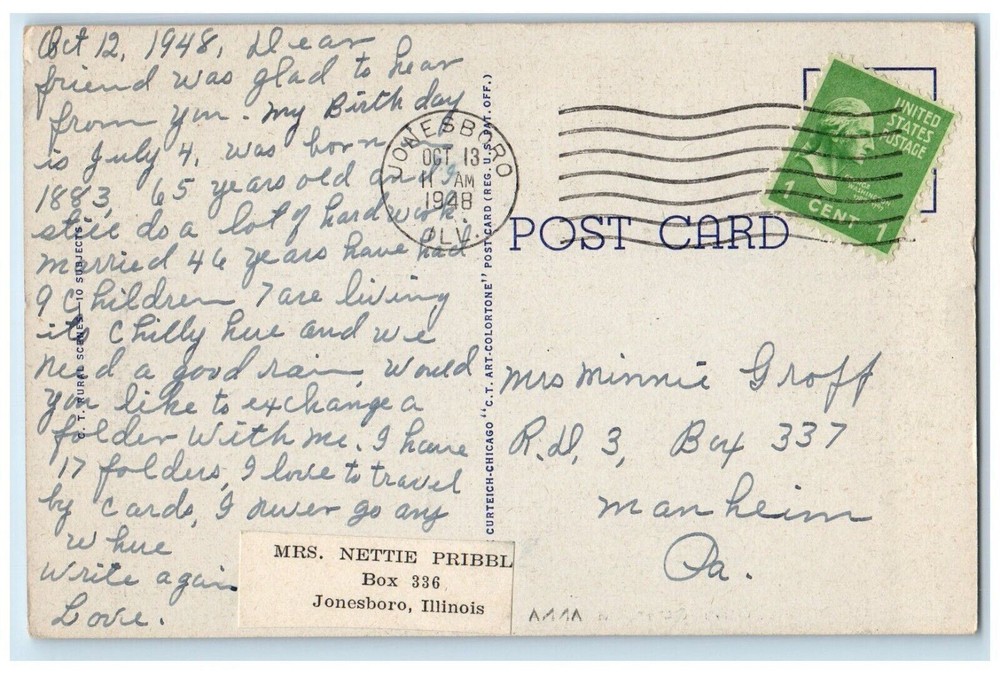 Oct 12, 1948, Dear
friend was glad to hear
from you. my Birthday
is July 4, was born
1883, 65 years old and
still do a lot of hard work.
married 46 years have had
9 children 7 are living
its chilly here and we
need a good rain, would
you like to exchange a
folder with me. I have
17 folders, I love to travel
by cards, I never go any
where
write again
Love.
MRS. NETTIE PRIBBL
Box 336
Jonesboro, Illinois
C. T. RURAL SCENES—10 SUBJECTS
CURTEICH-CHICAGO "C.T. ART-COLORTONE" POST CARD (REG. U.S. PAT. OFF.)
JONESBORO
OCT 13
11 AM
1948
POST CARD
UNITED
STATES
POSTAGE
GEORGE
WASHINGTON
1 CENT 1
Mrs Minnie Groff
R.D, 3, Box 337
Manheim
Pa.